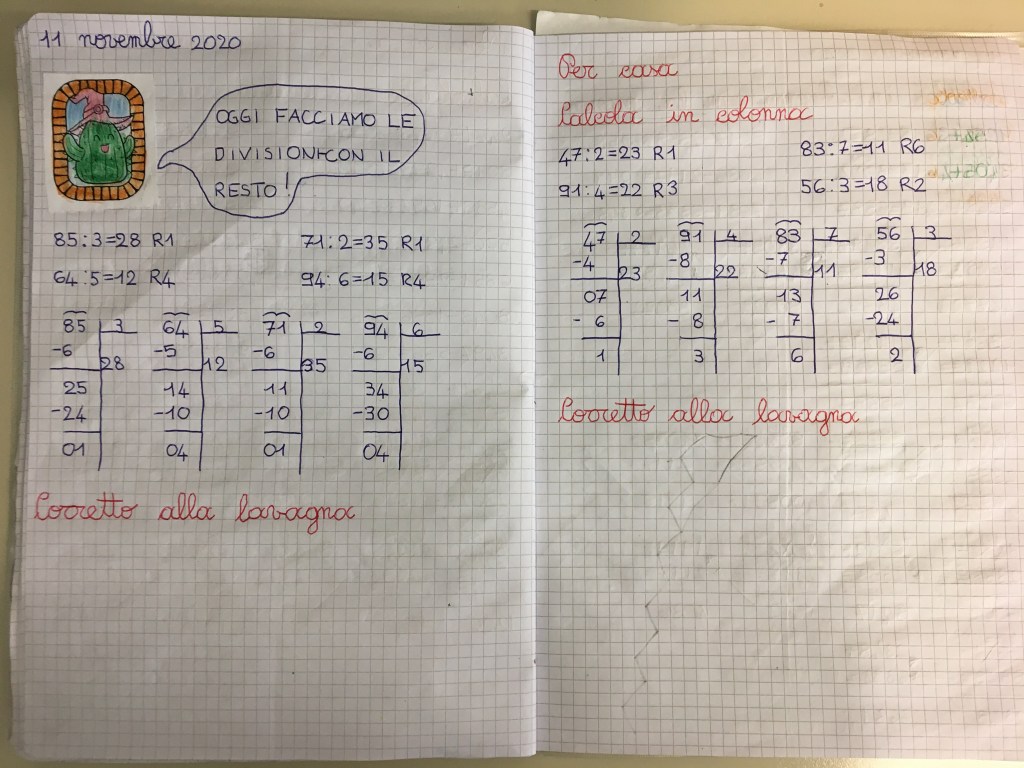 11 novembre 2020
OGGI FACCIAMO LE
DIVISIONI CON IL
RESTO!
85:3=28 R1 71:2=35 R1
64:5=12 R4 94:6=15 R4
85 3 64 5 71 2 94 6
-6 28 -5 12 -6 35 -6 15
25 14 11 34
-24 -10 -10 -30
01 04 01 04
Corretto alla lavagna
Per casa
Calcola in colonna
47:2=23 R1 83:7=11 R6
91:4=22 R3 56:3=18 R2
47 2 91 4 83 7 56 3
-4 23 -8 22 -7 11 -3 18
07 11 13 26
-6 -8 -7 -24
1 3 6 2
Corretto alla lavagna